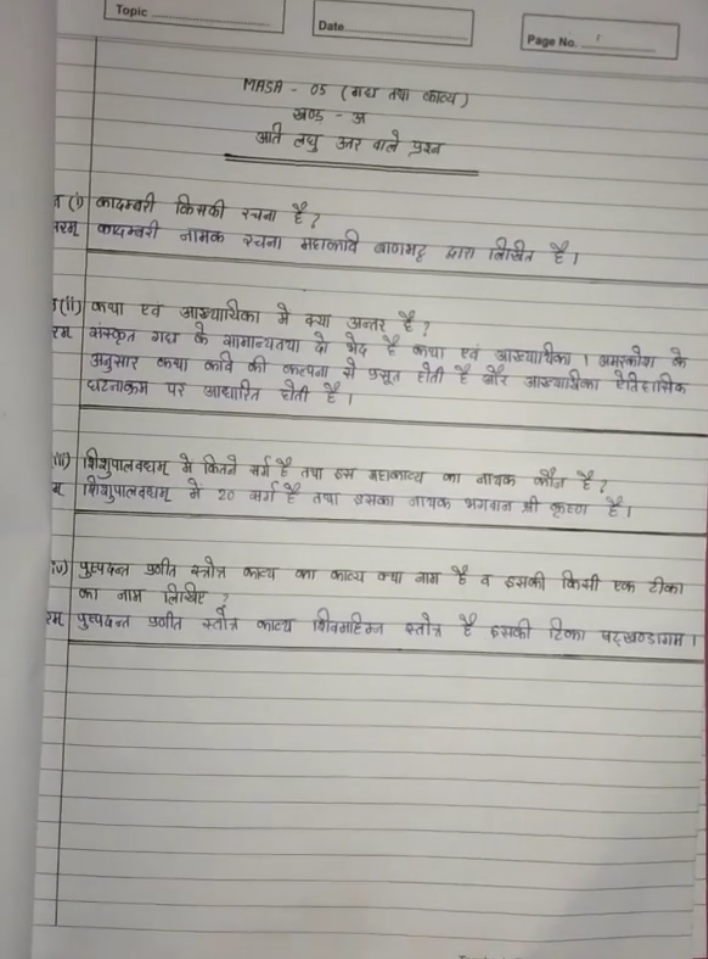 Topic
Date
Page No.
MASA - 05 (गद्य तथा काव्य)
खण्ड - अ
अति लघु उत्तर वाले प्रश्न
(i) कादम्बरी किसकी रचना है?
रम् कादम्बरी नामक रचना महाकवि बाणभट्ट द्वारा लिखित है।
(ii) कथा एवं आख्यायिका मे क्या अन्तर है?
रम् संस्कृत गद्य के सामान्यतया दो भेद है कथा एवं आख्यायिका। अमरकोश के
अनुसार कथा कवि की कल्पना से प्रसूत होती है और आख्यायिका ऐतिहासिक
घटनाक्रम पर आधारित होती है।
(iii) शिशुपालवधम् में कितने सर्ग है तथा इस महाकाव्य का नायक कौन है?
म् शिशुपालवधम् में 20 सर्ग है तथा इसका नायक भगवान श्री कृष्ण है।
iv) पुष्पदन्त प्रणीत स्त्रोत्र काव्य का काव्य क्या नाम है व इसकी किसी एक टीका
का नाम लिखिए?
रम् पुष्पदन्त प्रणीत स्तोत्र काव्य शिवमहिम्न स्तोत्र है इसकी टिका षट्खण्डागम।